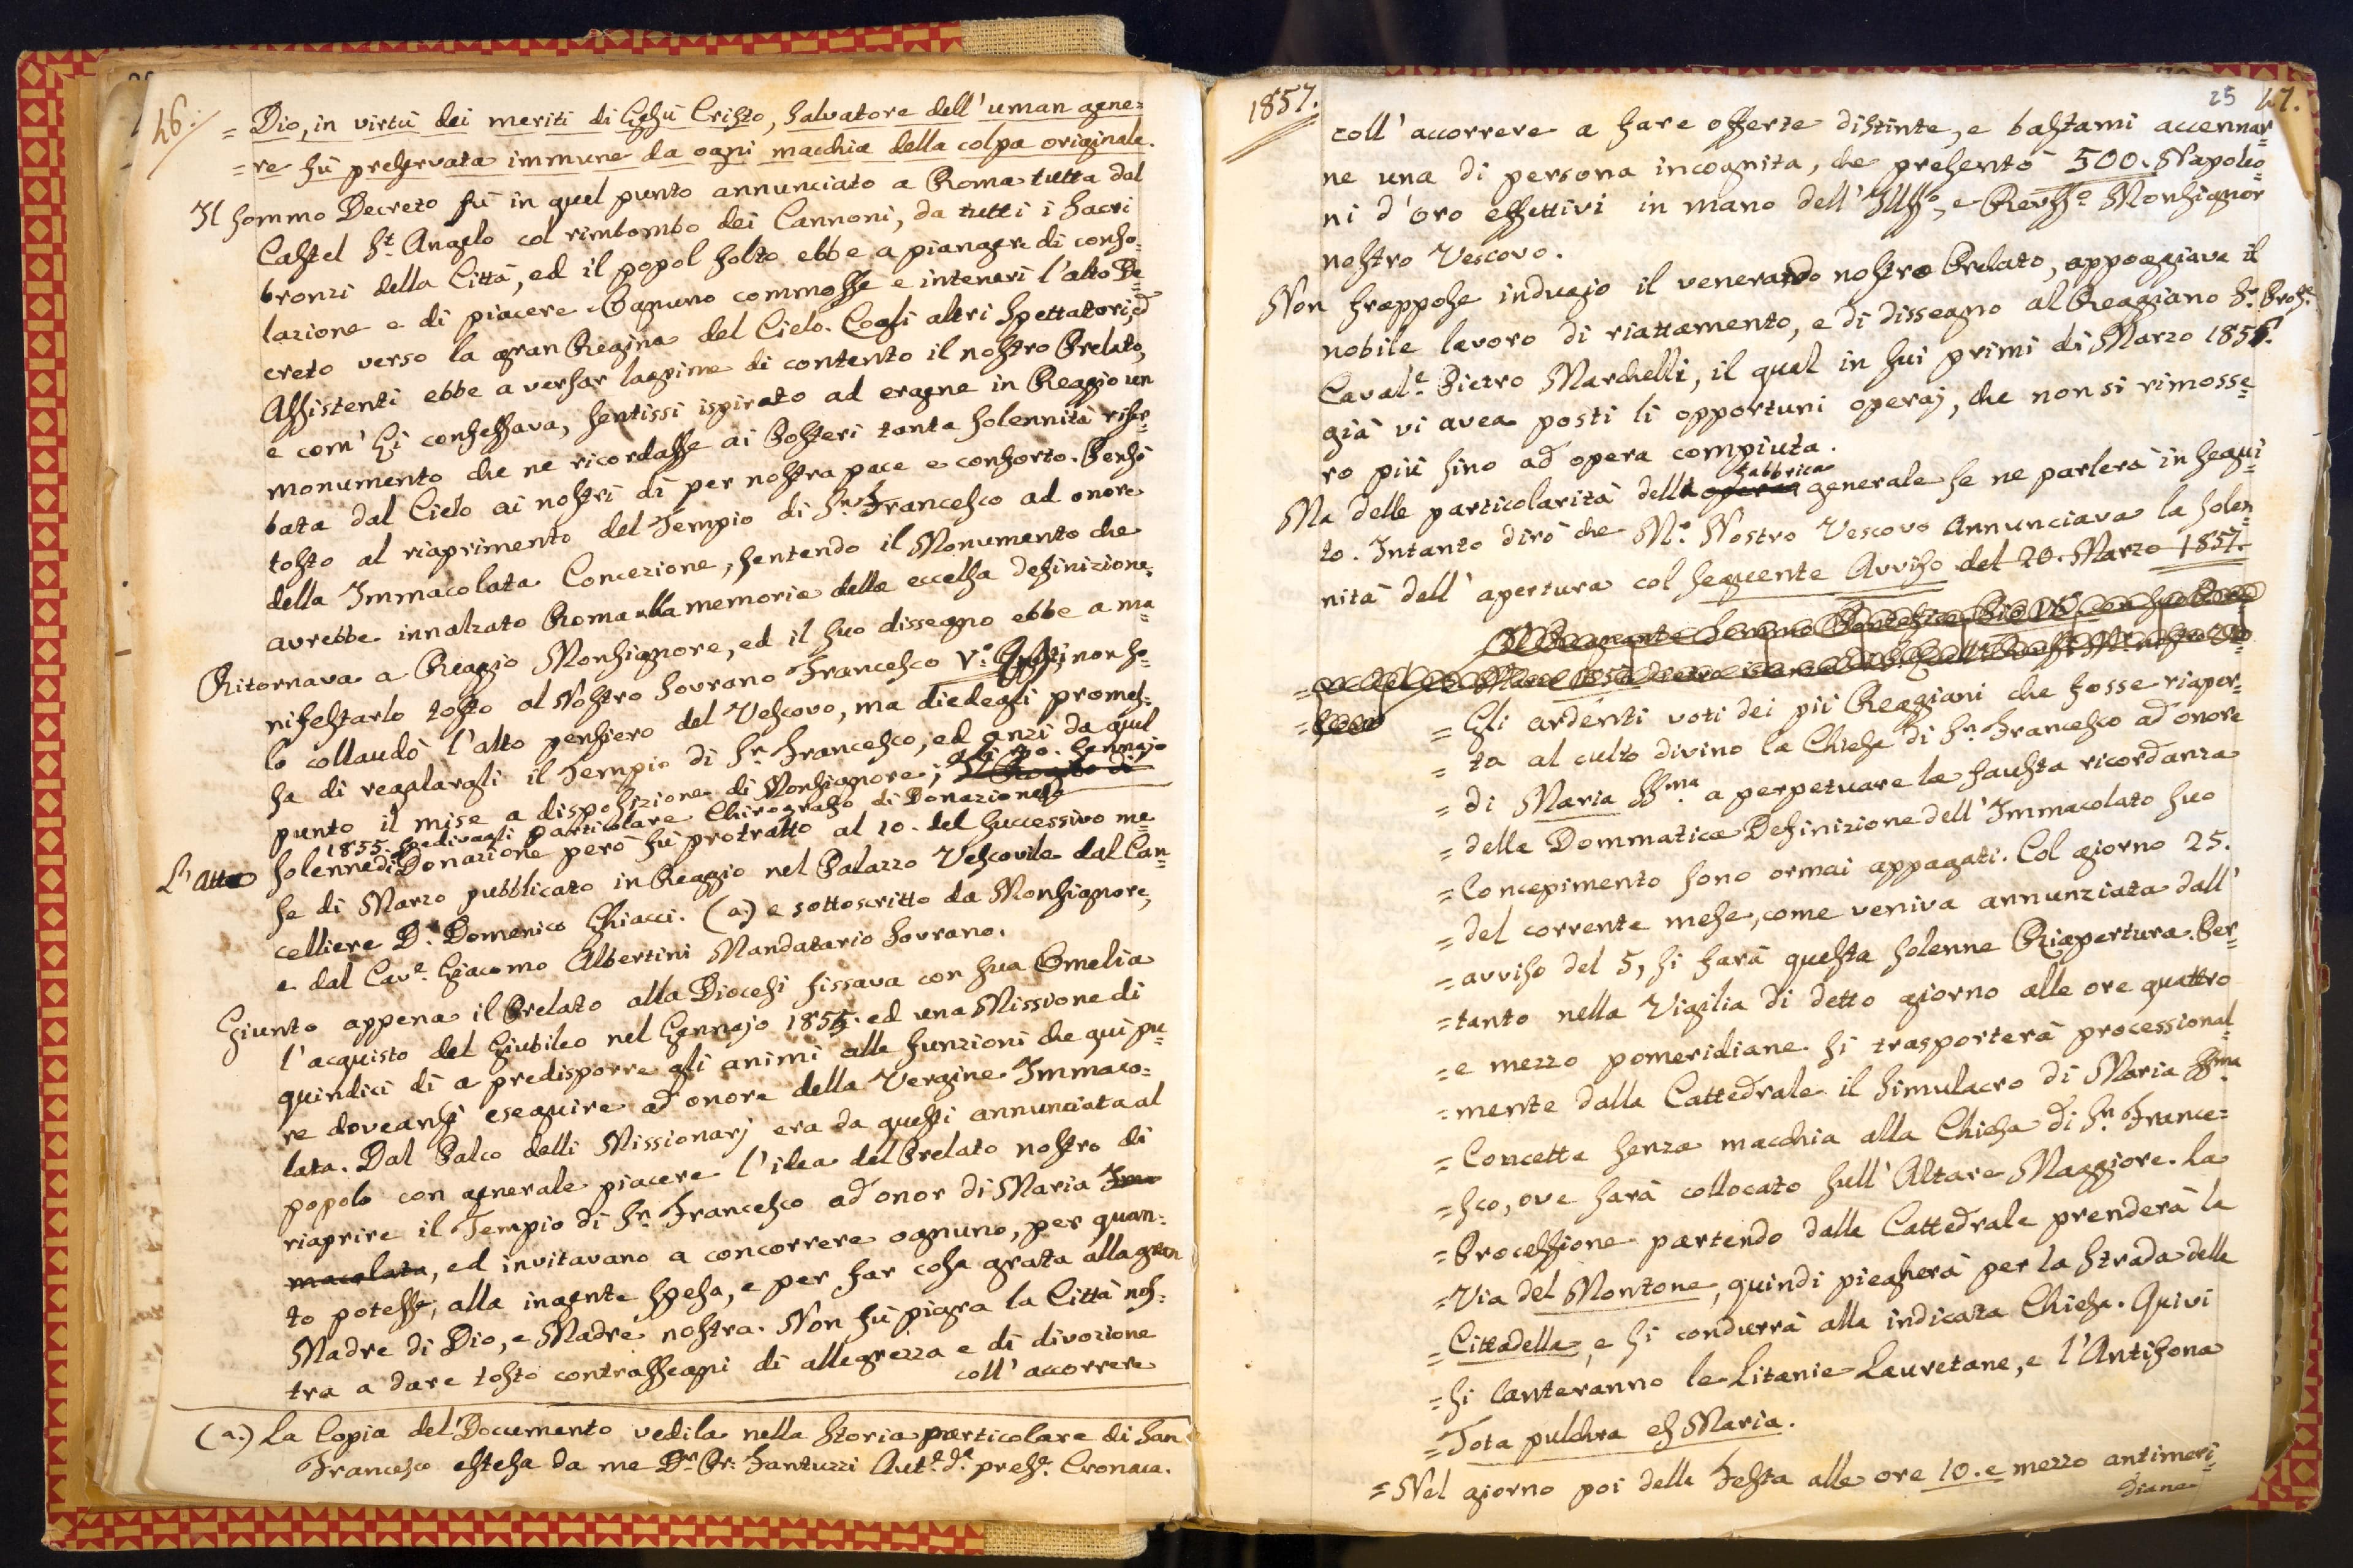 46.
= Dio, in virtù dei meriti di Gesù Cristo, Salvatore dell'uman gene=
= re fù preservata immune da ogni macchia della colpa originale.
Il sommo Decreto fù in quel punto annunciato a Roma tutta dal
Castel St. Angelo col rimbombo dei Cannoni, da tutti i sacri
bronzi della Città, ed il popol solto ebbe a piangere di conso=
lazione e di piacere. Ognuno commosse e intenerì l'alto De=
creto verso la gran Regina del Cielo. Cogli altri Spettatori, ed
Assistenti ebbe a versar lagrime di contento il nostro Prelato,
e com'Ei confessava, sentissi ispirato ad ergere in Reggio un
monumento che ne ricordasse ai Posteri tanta solennità riser=
bata dal Cielo ai nostri dì per nostra pace e conforto. Pensò
tosto al riaprimento del Tempio di Sn. Francesco ad onore
della Immacolata Concezione, sentendo il Monumento che
avrebbe innalzato Roma alla memoria della eccelsa definizione.
Ritornava a Reggio Monsignore, ed il suo dissegno ebbe a ma=
nifestarlo tosto al Nostro Sovrano Francesco V.o non so=
lo collaudò l'alto pensiero del Vescovo, ma diedegli promes=
sa di regalargli il Tempio di Sn. Francesco, ed anzi da quel
punto il mise a disposizione di Monsignore; Gennajo
1855. spedivagli particolare Chirografo di Donazione
L'Atto solenne di Donazione però fù protratto al 10. del successivo me=
se di Marzo pubblicato in Reggio nel Palazzo Vescovile dal Can=
celliere D. Domenico Chiacci. (a.) e sottoscritto da Monsignore,
e dal Cav.e Giacomo Albertini Mandatario Sovrano.
Giunto appena il Prelato alla Diocesi fissava con sua Omelia
l'acquisto del Giubileo nel Gennajo 1855. ed una Missione di
quindici dì a predisporre gli animi alle funzioni che quì pu=
re doveansi eseguire ad onore della Vergine Immaco=
lata. Dal Palco delli Missionarj era da questi annunciata al
popolo con generale piacere l'idea del Prelato nostro di
riaprire il Tempio di Sn. Francesco ad onor di Maria Im=
macolata, ed invitavano a concorrere ognuno, per quan=
to potesse, alla ingente spesa, e per far cosa grata alla gran
Madre di Dio, e Madre nostra. Non fù pigra la Città nos=
tra a dare tosto contrassegni di allegrezza e di divozione
coll'accorrere
(a.) La Copia del Documento vedila nella Storia particolare di San
Francesco estesa da me Dr. Pr. Fantuzzi Aut.e d.a pres.e Cronaca.
1857.
25 47.
coll'accorrere a fare offerte distinte, e bastami accennar=
ne una di persona incognita, che presentò 500. Napoleo=
ni d'oro effettivi in mano dell'Illsso, e Revsso Monsignor
nostro Vescovo.
Non frappose indugio il venerando nostro Prelato, appoggiava il
nobile lavoro di riattamento, e di dissegno al Reggiano Sr. Profe.
Caval.e Pietro Marchelli, il qual in sui primi di Marzo 1856.
già vi avea posti li opportuni operaj, che non si rimosse=
ro più sino ad opera compiuta.
Ma delle particolarità della fabbrica generale se ne parlerà in segui=
to. Intanto dirò che M.r Nostro Vescovo annunciava la solen=
nità dell'apertura col seguente Avviso del 20. Marzo 1857.
= Gli ardenti voti dei più Reggiani che fosse riaper=
= ta al culto divino la Chiesa di Sn. Francesco ad onore
= di Maria SSma. a perpetuare la fausta ricordanza
= della Dommatica Definizione dell'Immacolato suo
= Concepimento sono ormai appagati. Col giorno 25.
= del corrente mese, come veniva annunziata dall'
= avviso del 5, si farà questa solenne Riapertura. Per=
= tanto nella Vigilia di detto giorno alle ore quattro
= e mezzo pomeridiane si trasporterà processional=
= mente dalla Cattedrale il Simulacro di Maria SSma
= Concetta senza macchia alla Chiesa di Sn. France=
= sco, ove sarà collocato sull'Altare Maggiore. La
= Processione partendo dalla Cattedrale prenderà la
= Via del Montone, quindi piegherà per la Strada della
= Cittadella, e si condurrà alla indicata Chiesa. Quivi
= si canteranno le Litanie Lauretane, e l'Antifona
= Tota pulchra es Maria.
= Nel giorno poi della Festa alle ore 10. e mezzo antimeri=
diane